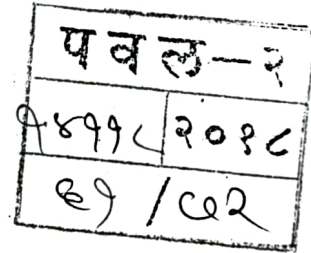 पवल-२
१४११८ २०१८
६१ / ७२